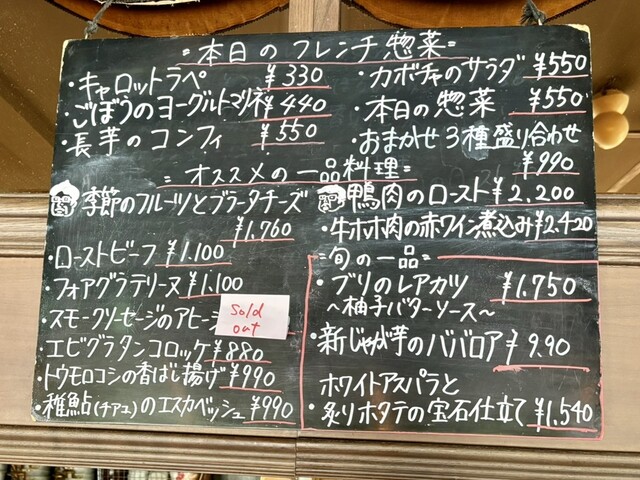 =本日のフレンチ惣菜=
・キャロットラペ ¥330
・ごぼうのヨーグルトマリネ ¥440
・長芋のコンフィ ¥550
・カボチャのサラダ ¥550
・本日の惣菜 ¥550
・おまかせ3種盛り合わせ
¥990
=オススメの一品料理=
季節のフルーツとブラータチーズ
¥1.760
・ローストビーフ ¥1.100
・フォアグラテリーヌ ¥1.100
・スモークソーセージのアヒー
sold
out
エビグラタンコロッケ ¥880
・トウモロコシの香ばし揚げ ¥990
・稚鮎(チアユ)のエスカベッシュ ¥990
鴨肉のロースト ¥2.200
・牛ホホ肉の赤ワイン煮込み ¥2.420
=旬の一品=
・ブリのレアカツ ¥1.750
～柚子バターソース～
・新じゃが芋のババロア ¥9.90
ホワイトアスパラと
・炙りホタテの宝石仕立て ¥1.540